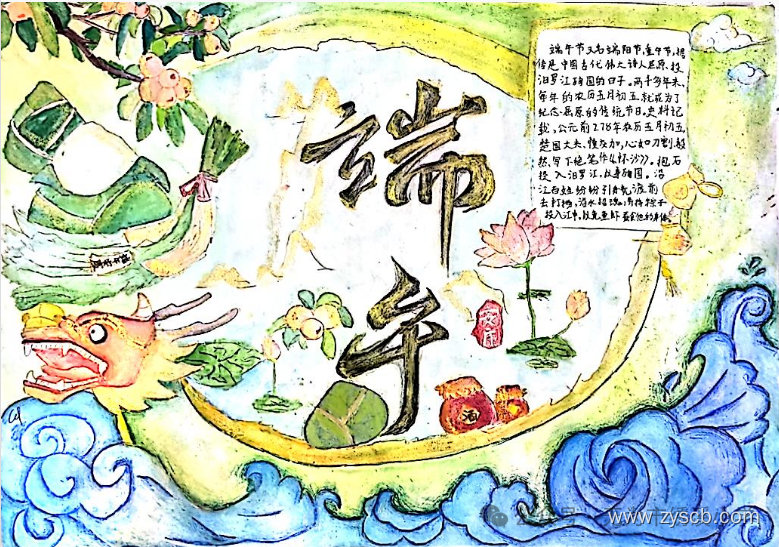 端午
端午节又名端阳节,重午节,相
传是中国古代伟大诗人屈原,投
汨罗江殉国的日子。两千多年来,
每年的农历五月初五就成为了
纪念屈原的传统节日。史料记
载,公元前278年农历五月初五,
楚国大夫、
心如刀割,毅
然写下绝笔作《怀沙》。抱石
投入汨罗江,以身殉国。沿
江百姓纷纷引舟
去打捞,沿水招魂,
粽子
投入江中,以免鱼虾
酒
www.zyscb.com